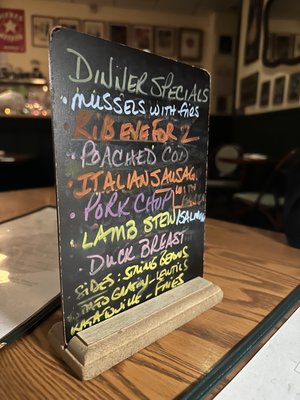 DINNER SPECIALS
· MUSSELS WITH FRIES
· RIB EYE FOR 2
· POACHED COD
· ITALIAN SAUSAG.
· PORK CHOP WITH
· LAMB STEW /SALMON
· DUCK BREAST
SIDES: STRING BEANS
POTATO GRATIN - LENTILS
RATATOUILLE - FRIES